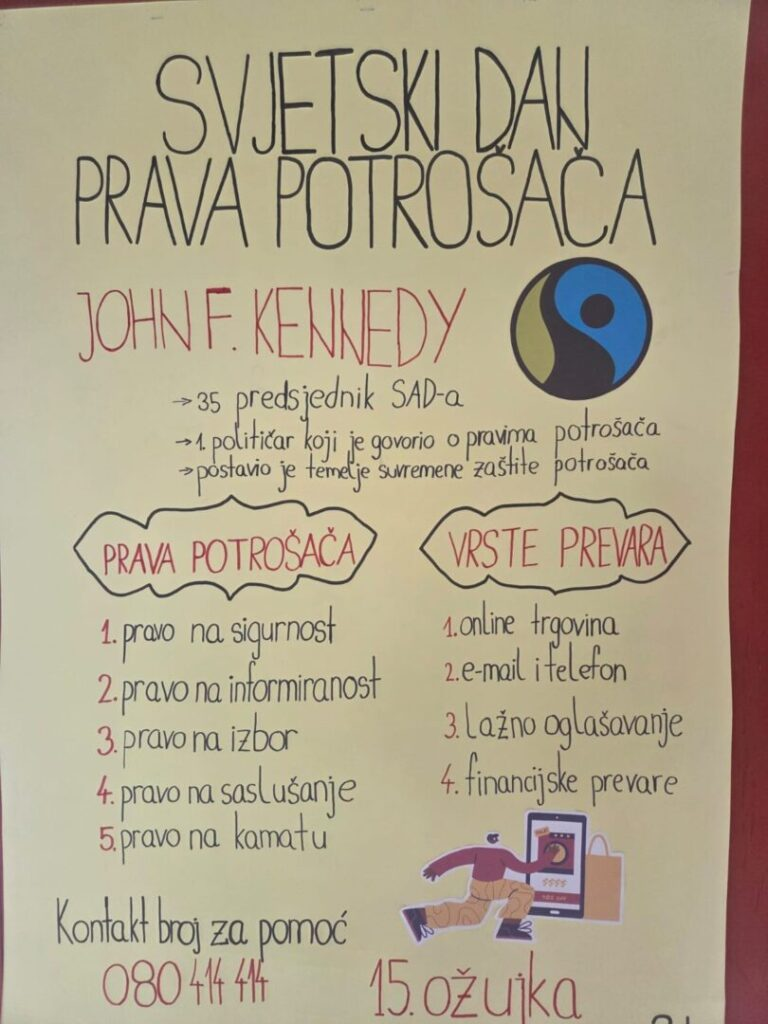 SVJETSKI DAN
PRAVA POTROŠAČA
JOHN F. KENNEDY
→ 35 predsjednik SAD-a
→ 1. političar koji je govorio o pravima potrošača
→ postavio je temelje suvremene zaštite potrošača
PRAVA POTROŠAČA
1. pravo na sigurnost
2. pravo na informiranost
3. pravo na izbor
4. pravo na saslušanje
5. pravo na kamatu
VRSTE PREVARA
1. online trgovina
2. e-mail i telefon
3. lažno oglašavanje
4. financijske prevare
$$$$
Kontakt broj za pomoć
080 414 414
15. ožujka